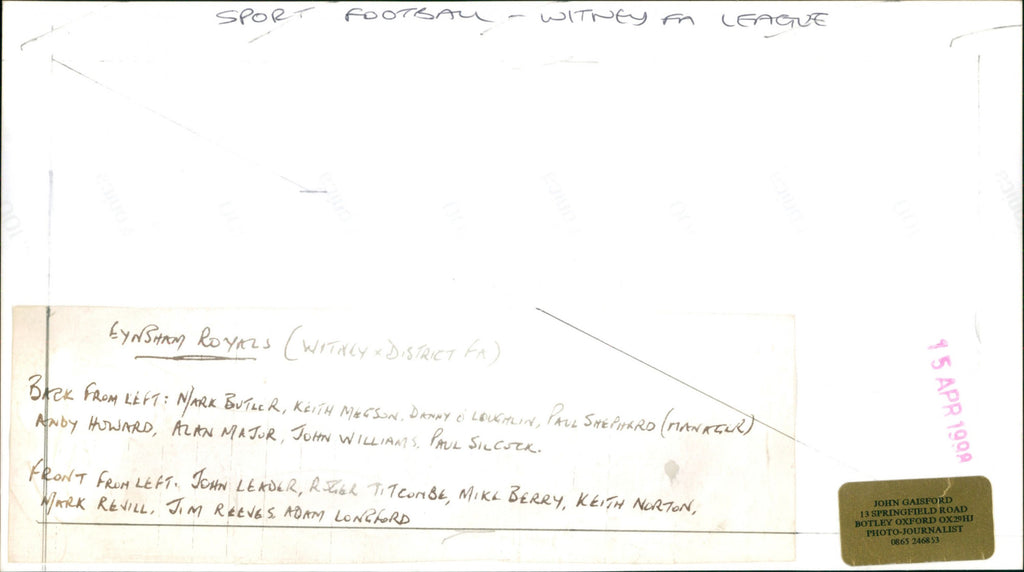 SPORT FOOTBALL - WITNEY FA LEAGUE
EYNSHAM ROYALS (WITNEY & DISTRICT FA)
BACK FROM LEFT: MARK BUTLER, KEITH MEGSON, DANNY O'LOUGHLIN, PAUL SHEPHERD (MANAGER)
ANDY HOWARD, ALAN MAJOR, JOHN WILLIAMS, PAUL SILCOCK.
FRONT FROM LEFT. JOHN LEADER, ROGER TITCOMBE, MIKE BERRY, KEITH NORTON,
MARK REVILL, JIM REEVES ADAM LONGFORD
15 APR 199
JOHN GAISFORD
13 SPRINGFIELD ROAD
BOTLEY OXFORD OX29HJ
PHOTO-JOURNALIST
0865 246853